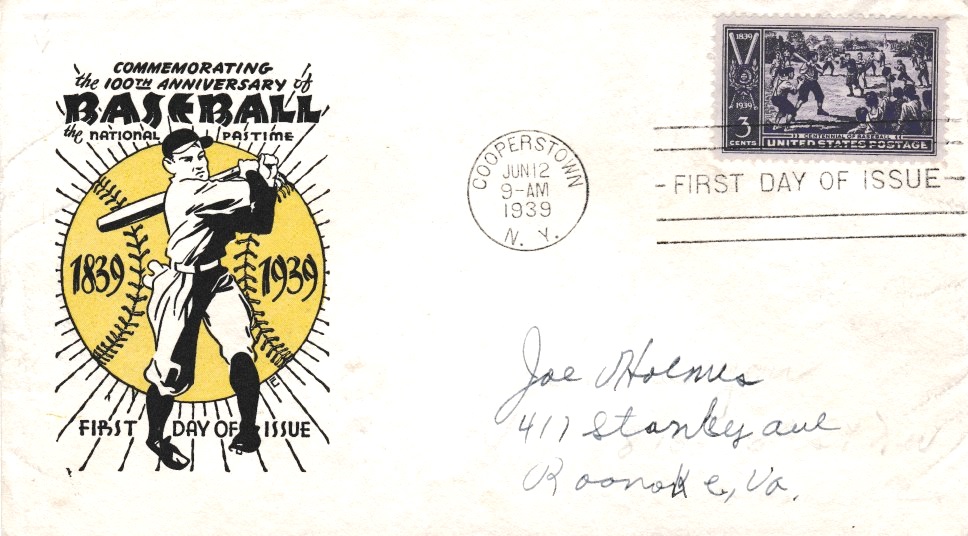 COMMEMORATING
the 100TH ANNIVERSARY of
BASEBALL
the NATIONAL PASTIME
1839 1939
FIRST DAY OF ISSUE
COOPERSTOWN
JUN 12
9-AM
1939
N. Y.
1839
1939
3
CENTS
CENTENNIAL OF BASEBALL
UNITED STATES POSTAGE
FIRST DAY OF ISSUE
Joe Holmes
417 Stanley ave
Roanoke, Va.